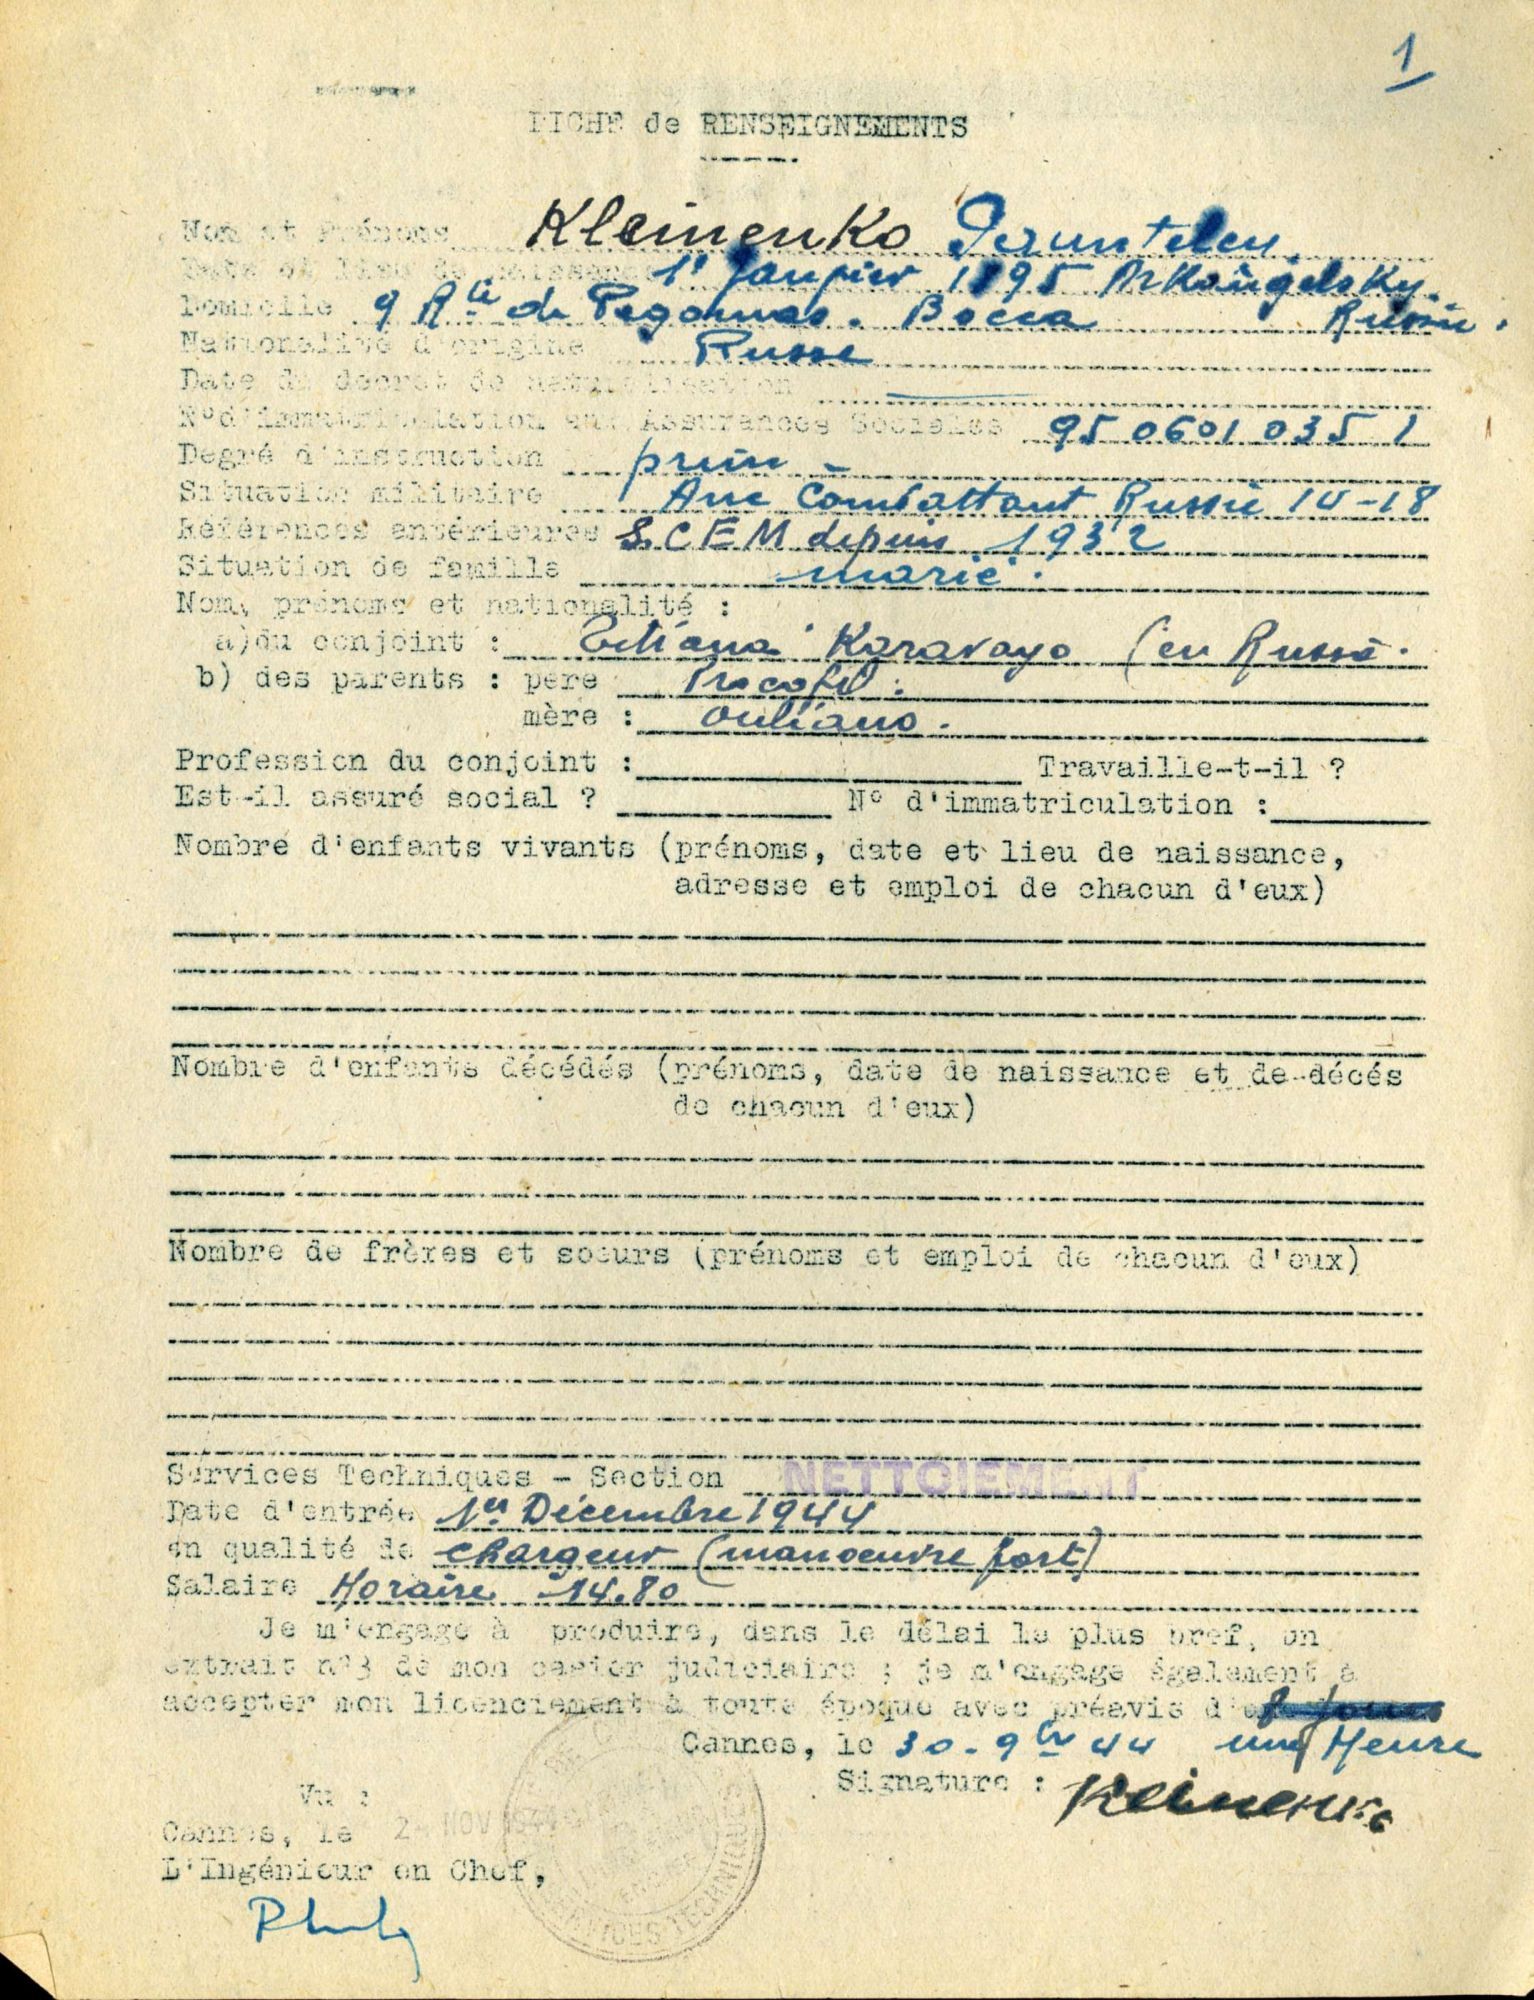 1
FICHE de RENSEIGNEMENTS
Nom et Prénoms Kleinenko
Date et lieu de naissance 1r Janvier 1895 Arkangelsky.
Domicile 9 Rte de Pegomas. Bocca Russie.
Nationalité d'origine Russe
Date du décret de naturalisation
N°d'immatriculation aux Assurances Sociales 95 0601 035 1
Degré d'instruction prim -
Situation militaire Anc Combattant Russie 14-18
Références antérieures S.C.E.M depuis 1932
Situation de famille marié.
Nom, prénoms et nationalité :
a)du conjoint : Karavayo (en Russie.
b) des parents : père Procofil.
mère : ouliano.
Profession du conjoint : Travaille-t-il ?
Est-il assuré social ? N° d'immatriculation :
Nombre d'enfants vivants (prénoms, date et lieu de naissance,
adresse et emploi de chacun d'eux)
Nombre d'enfants décédés (prénoms, date de naissance et de décés
de chacun d'eux)
Nombre de frères et soeurs (prénoms et emploi de chacun d'eux)
Services Techniques - Section NETTOIEMENT
Date d'entrée 1er Décembre 1944
en qualité de chargeur (manoeuvre fort)
Salaire Horaire 14.80
Je m'engage à produire, dans le délai le plus bref, un
extrait n°3 de mon casier judiciaire ; je m'engage également à
accepter mon licenciement à toute époque avec préavis d'
Cannes, le 30-9bre 44 une Heure
Signature : Kleinenko
Vu :
Cannes, le 2 NOV 1944
L'Ingénieur en Chef,
SERVICES TECHNIQUES